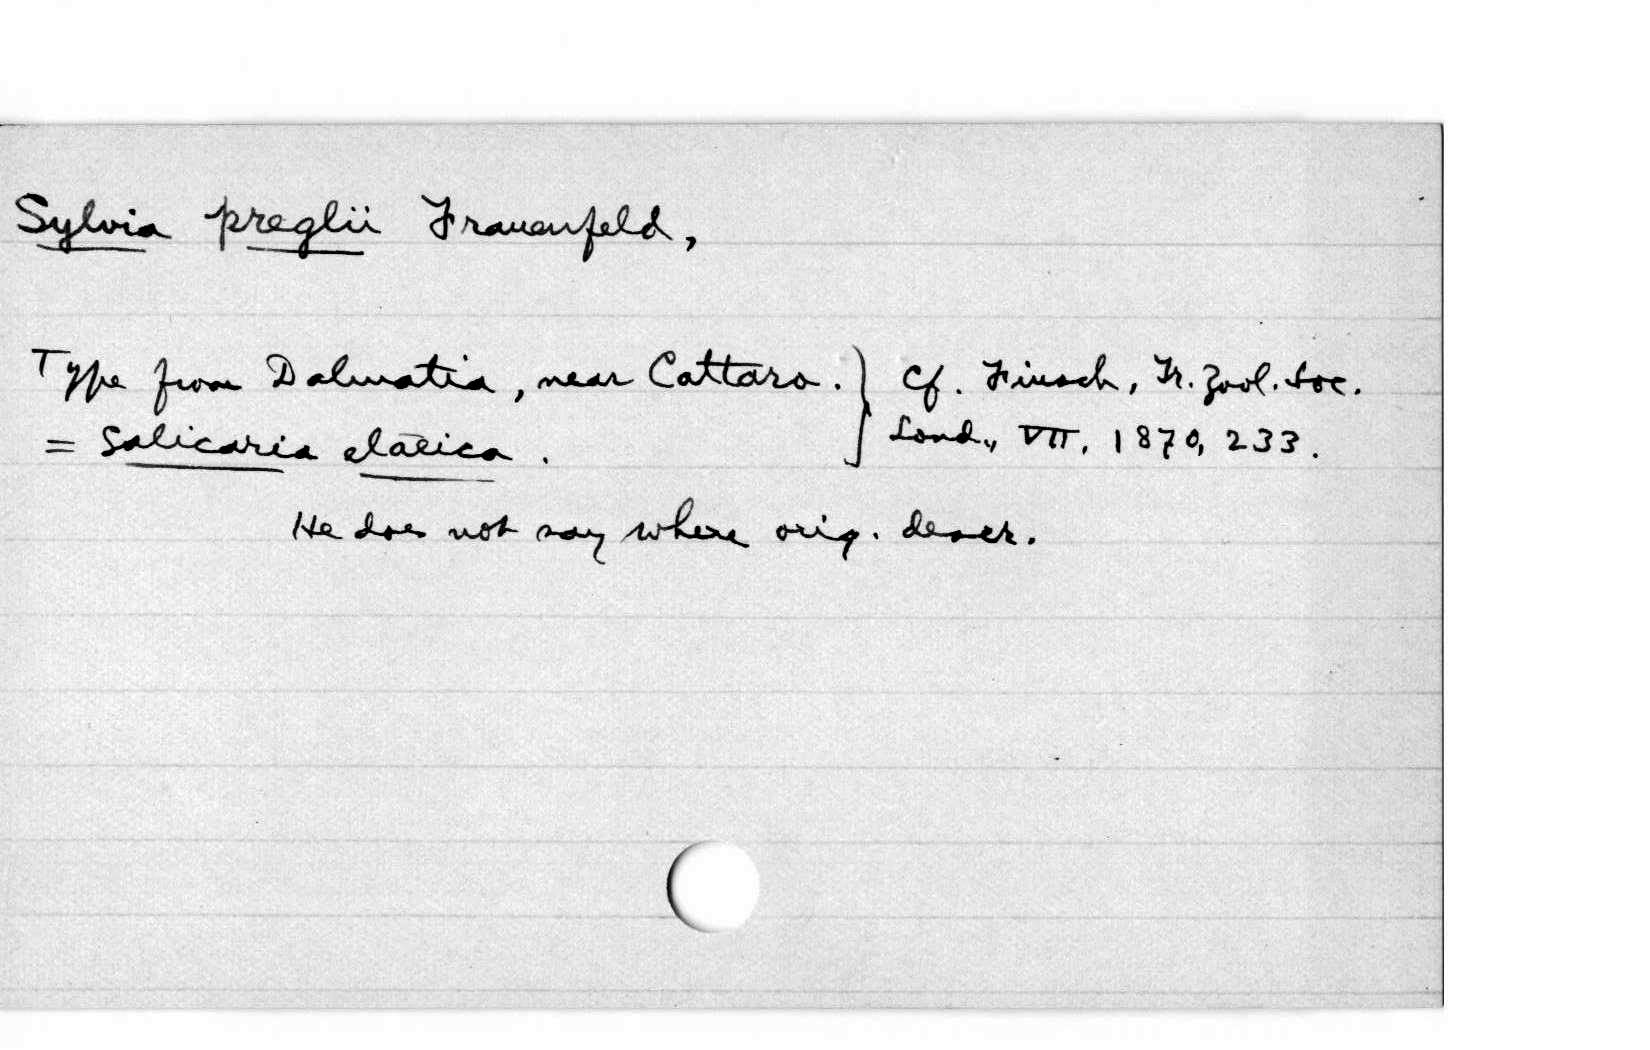 Sylvia preglii Frauenfeld,
Type from Dalmatia, near Cattaro. } Cf. Finsch, Tr. Zool. Soc.
= Salicaria elaeica. Lond., VII, 1870, 233.
He does not say where orig. descr.